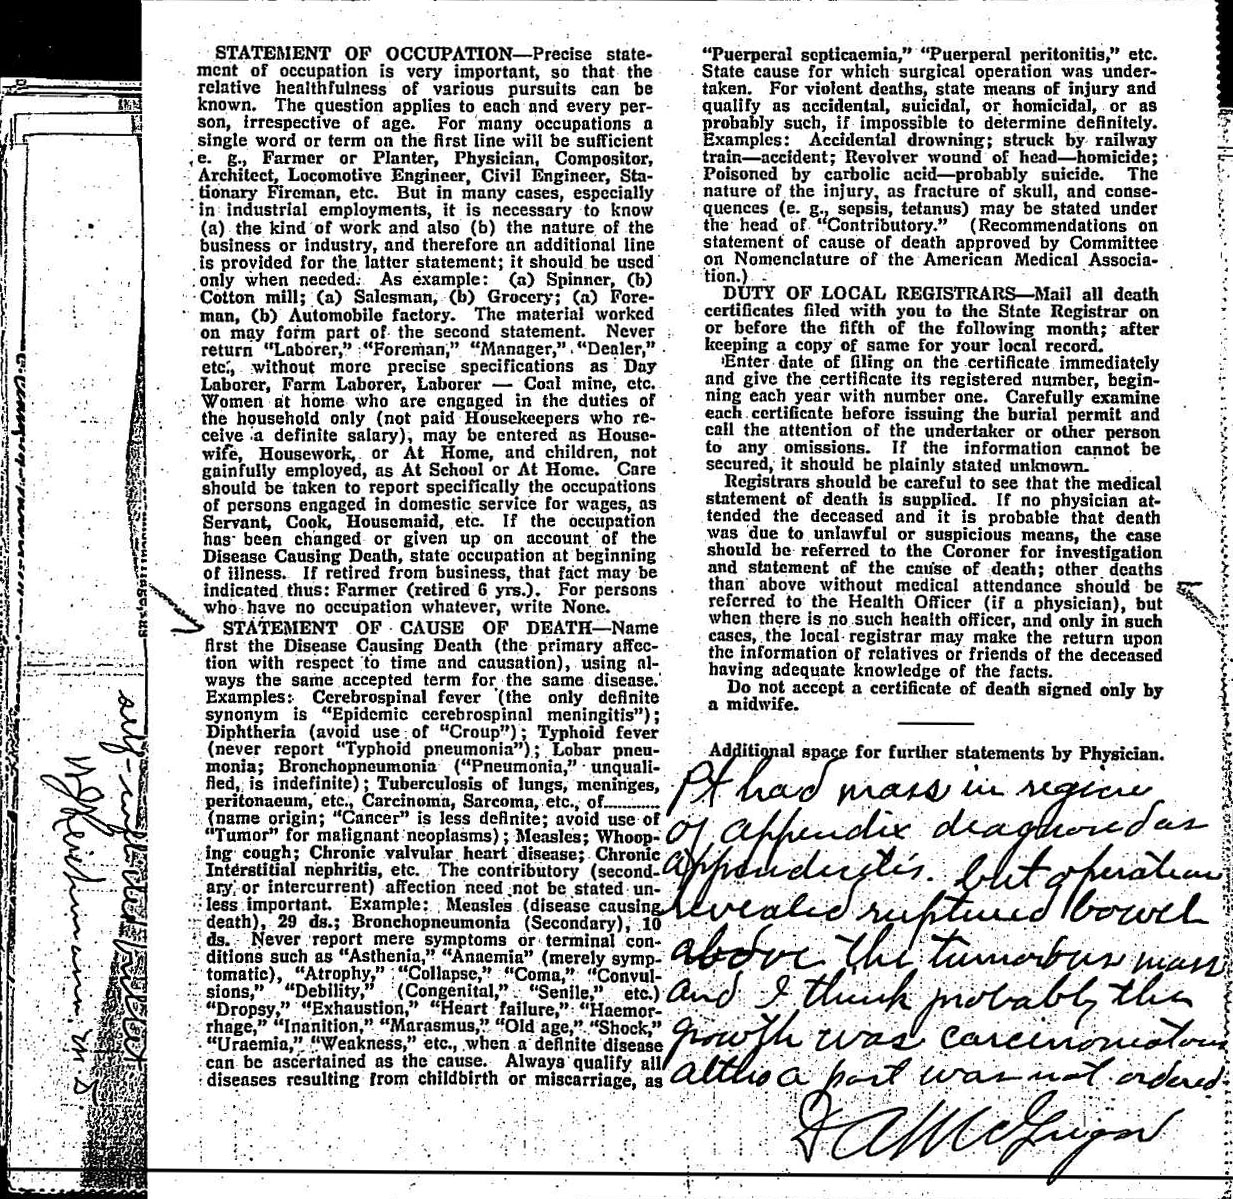 STATEMENT OF OCCUPATION—Precise state-
ment of occupation is very important, so that the
relative healthfulness of various pursuits can be
known. The question applies to each and every per-
son, irrespective of age. For many occupations a
single word or term on the first line will be sufficient
e. g., Farmer or Planter, Physician, Compositor,
Architect, Locomotive Engineer, Civil Engineer, Sta-
tionary Fireman, etc. But in many cases, especially
in industrial employments, it is necessary to know
(a) the kind of work and also (b) the nature of the
business or industry, and therefore an additional line
is provided for the latter statement; it should be used
only when needed. As example: (a) Spinner, (b)
Cotton mill; (a) Salesman, (b) Grocery; (a) Fore-
man, (b) Automobile factory. The material worked
on may form part of the second statement. Never
return "Laborer," "Foreman," "Manager," "Dealer,"
etc., without more precise specifications as Day
Laborer, Farm Laborer, Laborer — Coal mine, etc.
Women at home who are engaged in the duties of
the household only (not paid Housekeepers who re-
ceive a definite salary), may be entered as House-
wife, Housework, or At Home, and children, not
gainfully employed, as At School or At Home. Care
should be taken to report specifically the occupations
of persons engaged in domestic service for wages, as
Servant, Cook, Housemaid, etc. If the occupation
has been changed or given up on account of the
Disease Causing Death, state occupation at beginning
of illness. If retired from business, that fact may be
indicated thus: Farmer (retired 6 yrs.). For persons
who have no occupation whatever, write None.
STATEMENT OF CAUSE OF DEATH—Name
first the Disease Causing Death (the primary affec-
tion with respect to time and causation), using al-
ways the same accepted term for the same disease.
Examples: Cerebrospinal fever (the only definite
synonym is "Epidemic cerebrospinal meningitis");
Diphtheria (avoid use of "Croup"); Typhoid fever
(never report "Typhoid pneumonia"); Lobar pneu-
monia; Bronchopneumonia ("Pneumonia," unquali-
fied, is indefinite); Tuberculosis of lungs, meninges,
peritonaeum, etc., Carcinoma, Sarcoma, etc., of............
(name origin; "Cancer" is less definite; avoid use of
"Tumor" for malignant neoplasms); Measles; Whoop-
ing cough; Chronic valvular heart disease; Chronic
Interstitial nephritis, etc. The contributory (second-
ary or intercurrent) affection need not be stated un-
less important. Example: Measles (disease causing
death), 29 ds.; Bronchopneumonia (Secondary), 10
ds. Never report mere symptoms or terminal con-
ditions such as "Asthenia," "Anaemia" (merely symp-
tomatic), "Atrophy," "Collapse," "Coma," "Convul-
sions," "Debility," (Congenital," "Senile," etc.)
"Dropsy," "Exhaustion," "Heart failure," "Haemor-
rhage," "Inanition," "Marasmus," "Old age," "Shock,"
"Uraemia," "Weakness," etc., when a definite disease
can be ascertained as the cause. Always qualify all
diseases resulting from childbirth or miscarriage, as
"Puerperal septicaemia," "Puerperal peritonitis," etc.
State cause for which surgical operation was under-
taken. For violent deaths, state means of injury and
qualify as accidental, suicidal, or homicidal, or as
probably such, if impossible to determine definitely.
Examples: Accidental drowning; struck by railway
train—accident; Revolver wound of head—homicide;
Poisoned by carbolic acid—probably suicide. The
nature of the injury, as fracture of skull, and conse-
quences (e. g., sepsis, tetanus) may be stated under
the head of "Contributory." (Recommendations on
statement of cause of death approved by Committee
on Nomenclature of the American Medical Associa-
tion.)
DUTY OF LOCAL REGISTRARS—Mail all death
certificates filed with you to the State Registrar on
or before the fifth of the following month; after
keeping a copy of same for your local record.
Enter date of filing on the certificate immediately
and give the certificate its registered number, begin-
ning each year with number one. Carefully examine
each certificate before issuing the burial permit and
call the attention of the undertaker or other person
to any omissions. If the information cannot be
secured, it should be plainly stated unknown.
Registrars should be careful to see that the medical
statement of death is supplied. If no physician at-
tended the deceased and it is probable that death
was due to unlawful or suspicious means, the case
should be referred to the Coroner for investigation
and statement of the cause of death; other deaths
than above without medical attendance should be
referred to the Health Officer (if a physician), but
when there is no such health officer, and only in such
cases, the local registrar may make the return upon
the information of relatives or friends of the deceased
having adequate knowledge of the facts.
Do not accept a certificate of death signed only by
a midwife.
Additional space for further statements by Physician.
Pt had mass in region
of appendix diagnosed as
appendicitis. but operation
revealed ruptured bowel
above the tumorous mass
and I think probably the
growth was carcinomatous
altho a post was not ordered.
D A McGregor